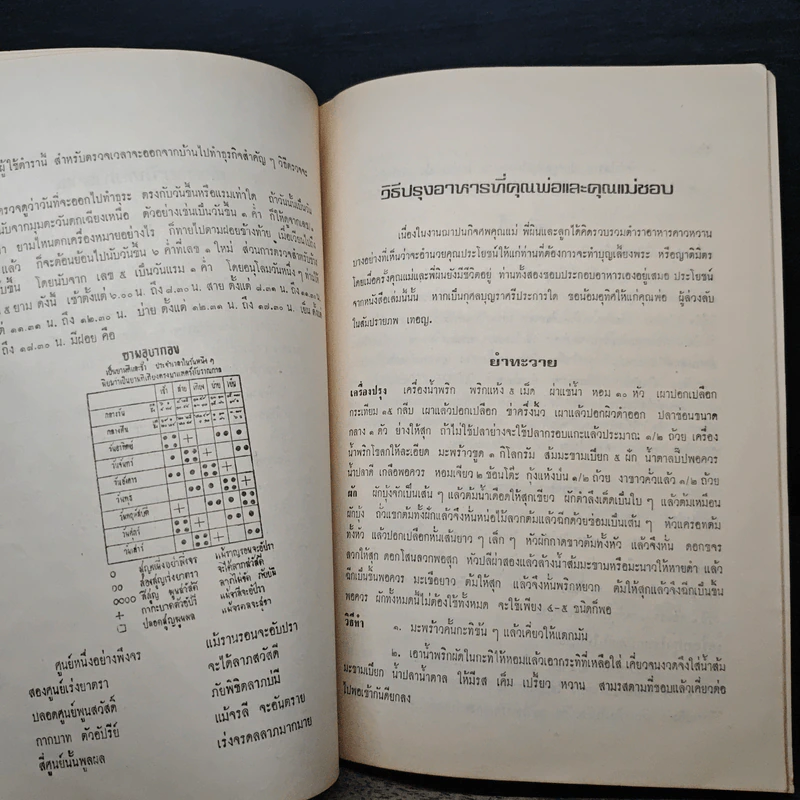 ผู้ใช้ตำรานี้ สำหรับตรวจเวลาจะออกจากบ้านไปทำธุรกิจสำคัญ ๆ วิธีตรวจจะ
ตรวจดูว่าวันที่จะออกไปทำธุระ ตรงกับวันขึ้นหรือแรมเท่าใด ถ้าวันนั้นเป็นวัน
นับจากมุมตะวันตกเฉียงเหนือ ตัวอย่างเช่นเป็นวันขึ้น ๑ ค่ำ ก็ให้ดูจากเลข
ค่ำ ยามไหนตกเครื่องหมายอย่างไร ก็ทายไปตามฝอยข้างท้าย เมื่อเวียนไปถึง
แล้ว ก็จะต้องย้อนไปนับวันขึ้น ๖ ค่ำที่เลข ๑ ใหม่ ส่วนการตรวจสำหรับข้าง
ขึ้น โดยนับจาก เลข ๕ เป็นวันแรม ๑ ค่ำ โดยอนุโลมวันหนึ่ง ๆ ท่านให้
๕ ยาม ดังนี้ เช้าตั้งแต่ ๖.๐๐ น. ถึง ๘.๓๐ น. สาย ตั้งแต่ ๘.๓๑ น. ถึง ๑๑.๓๐ น.
แต่ ๑๑.๓๑ น. ถึง ๑๒.๓๐ น. บ่าย ตั้งแต่ ๑๒.๓๑ น. ถึง ๑๕.๓๐ น. เย็น ตั้งแต่
ถึง ๑๗.๓๐ น. มีฝอย คือ
ยามอุบากอง
เช้า สาย เที่ยง บ่าย เย็น
กลางวัน
กลางคืน
วันอาทิตย์
วันจันทร์
วันอังคาร
วันพุธ
วันพฤหัสบดี
วันศุกร์
วันเสาร์
ศูนย์หนึ่งอย่าพึงจร แม้รานรอนจะอัปรา
สองศูนย์เร่งยาตรา จะได้ลาภสวัสดี
ปลอดศูนย์พูนสวัสดิ์ ภัยพิชิตลาภบมี
กากบาท ตัวอัปรีย์ แม้จรลี จะอันตราย
สี่ศูนย์นั้นพูลผล เร่งจรดลลาภมากมาย
วิธีปรุงอาหารที่คุณพ่อและคุณแม่ชอบ
เนื่องในงานฌาปนกิจศพคุณแม่ พี่ถินและลูกได้คิดรวบรวมตำราอาหารคาวหวาน
บางอย่างที่เห็นว่าจะอำนวยคุณประโยชน์ให้แก่ท่านที่ต้องการจะทำบุญเลี้ยงพระ หรือญาติมิตร
โดยเมื่อครั้งคุณแม่และพี่ถินยังมีชีวิตอยู่ ท่านทั้งสองชอบประกอบอาหารเองอยู่เสมอ ประโยชน์
จากหนังสือเล่มนี้นั้น หากเป็นกุศลบุญราศรีประการใด ขอน้อมอุทิศให้แก่คุณพ่อ ผู้ล่วงลับ
ในสัมปรายภพ เทอญ.
ยำทะวาย
เครื่องปรุง เครื่องน้ำพริก พริกแห้ง ๕ เม็ด ผ่าแช่น้ำ หอม ๑๐ หัว เผาปอกเปลือก
กระเทียม ๑๕ กลีบ เผาแล้วปอกเปลือก ข่าครึ่งนิ้ว เผาแล้วปอกผิวดำออก ปลาช่อนขนาด
กลาง ๑ ตัว ย่างให้สุก ถ้าไม่ใช้ปลาย่างจะใช้ปลากรอบแกะแล้วประมาณ ๑/๒ ถ้วย เครื่อง
น้ำพริกโขลกให้ละเอียด มะพร้าวขูด ๑ กิโลกรัม ส้มมะขามเปียก ๕ ฝัก น้ำตาลปี๊บพอควร
น้ำปลาดี เกลือพอควร หอมเจียว ๒ ช้อนโต๊ะ กุ้งแห้งป่น ๑/๒ ถ้วย งาขาวคั่วแล้ว ๑/๒ ถ้วย
ผัก ผักบุ้งจักเป็นเส้น ๆ แล้วต้มน้ำเดือดให้สุกเขียว ผักตำลึงเด็ดเป็นใบ ๆ แล้วต้มเหมือน
ผักบุ้ง ถั่วแขกต้มทั้งฝักแล้วจึงหั่นหน่อไม้ลวกต้มแล้วฉีกด้วยซ่อมเป็นเส้น ๆ หัวแครอทต้ม
ทั้งหัว แล้วปอกเปลือกหั่นเส้นยาว ๆ เล็ก ๆ หัวผักกาดขาวต้มทั้งหัว แล้วจึงหั่น ดอกขจร
ลวกให้สุก ดอกโสนลวกพอสุก หัวปลีผ่าสองแล้วล้างน้ำส้มมะขามหรือมะนาวให้หายดำ แล้ว
ฉีกเป็นชิ้นพอควร มะเขือยาว ต้มให้สุก แล้วจึงหั่นพริกหยวก ต้มให้สุกแล้วจึงฉีกเป็นชิ้น
พอควร ผักทั้งหมดนี้ไม่ต้องใช้ทั้งหมด จะใช้เพียง ๔-๕ ชนิดก็พอ
วิธีทำ
๑. มะพร้าวคั้นกะทิข้น ๆ แล้วเคี่ยวให้แตกมัน
๒. เอาน้ำพริกผัดในกะทิให้หอมแล้วเอากระทิที่เหลือใส่ เคี่ยวจนงวดจึงใส่น้ำส้ม
มะขามเปียก น้ำปลาน้ำตาล ให้มีรส เค็ม เปรี้ยว หวาน สามรสตามที่ชอบแล้วเคี่ยวต่อ
ไปพอเข้ากันดียกลง